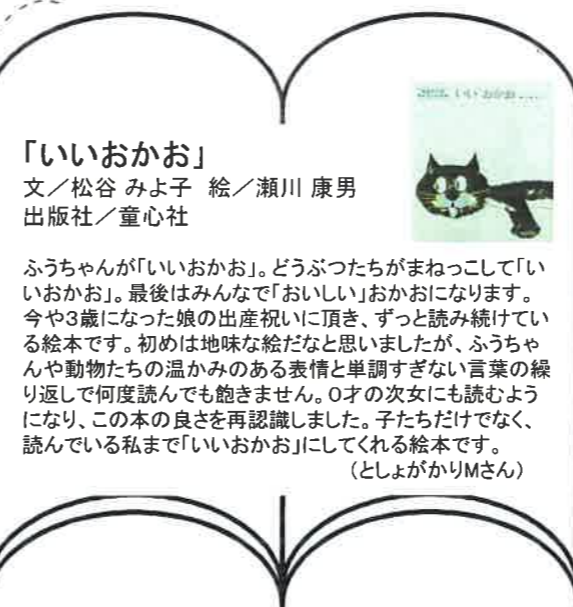 いい おかお
「いいおかお」
文／松谷 みよ子 絵／瀬川 康男
出版社／童心社
ふうちゃんが「いいおかお」。どうぶつたちがまねっこして「い
いおかお」。最後はみんなで「おいしい」おかおになります。
今や3歳になった娘の出産祝いに頂き、ずっと読み続けてい
る絵本です。初めは地味な絵だなと思いましたが、ふうちゃ
んや動物たちの温かみのある表情と単調すぎない言葉の繰
り返しで何度読んでも飽きません。0才の次女にも読むよう
になり、この本の良さを再認識しました。子たちだけでなく、
読んでいる私まで「いいおかお」にしてくれる絵本です。
（としょがかりMさん）